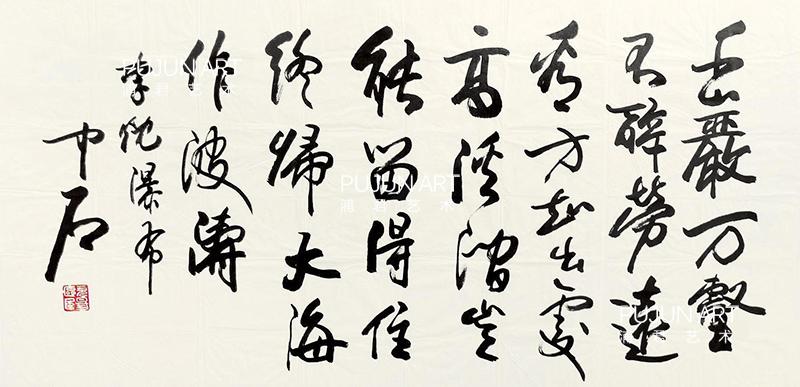 千巖万壑
不辭勞遠
看方知出處
高溪澗豈
能留得住
終歸大海
作波濤
李忱瀑布
中石
PUJUN ART
浦君艺术
PUJUN ART
浦君艺术
PUJUN ART
浦君艺术